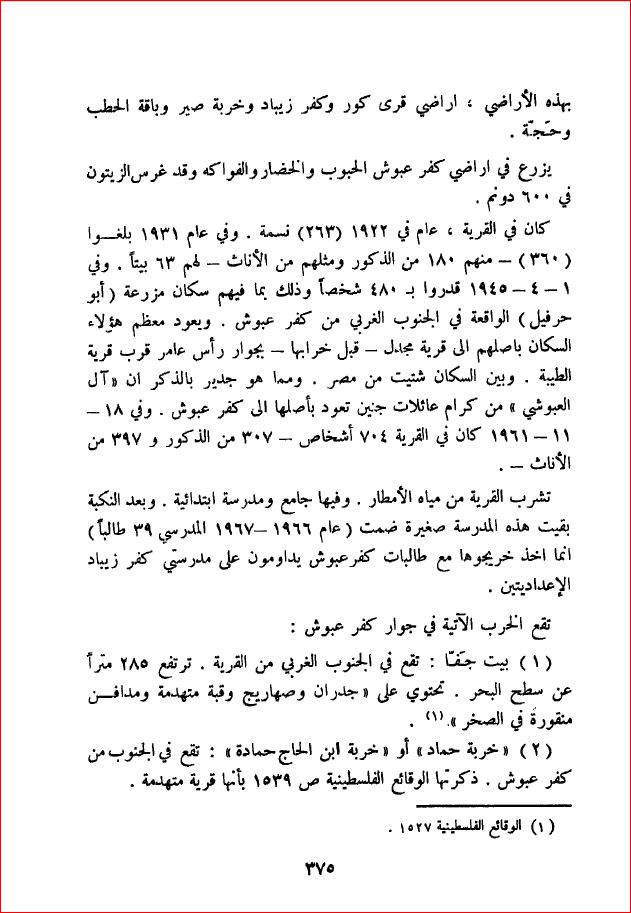 بهذه الأراضي ، اراضي قرى كور وكفر زيباد وخربة صير وباقة الحطب
وحَجّة .
يزرع في اراضي كفر عبوش الحبوب والخضار والفواكه وقد غرس الزيتون
في ٦٠٠ دونم .
كان في القرية ، عام في ١٩٢٢ (٢٦٣) نسمة . وفي عام ١٩٣١ بلغـــوا
(٣٦٠) – منهم ١٨٠ من الذكور ومثلهم من الأناث – لهم ٦٣ بيتاً . وفي
١ – ٤ – ١٩٤٥ قدروا بـ ٤٨٠ شخصاً وذلك بما فيهم سكان مزرعة (أبو
حرفيل) الواقعة في الجنوب الغربي من كفر عبوش . ويعود معظم هؤلاء
السكان باصلهم الى قرية مجدل – قبل خرابها – بجوار رأس عامر قرب قرية
الطيبة . وبين السكان شتيت من مصر . ومما هو جدير بالذكر ان «آل
العبوشي» من كرام عائلات جنين تعود بأصلها الى كفر عبوش . وفي ١٨ –
١١ – ١٩٦١ كان في القرية ٧٠٤ أشخاص – ٣٠٧ من الذكور و ٣٩٧ من
الأناث – .
تشرب القرية من مياه الأمطار . وفيها جامع ومدرسة ابتدائية . وبعد النكبة
بقيت هذه المدرسة صغيرة ضمت (عام ١٩٦٦ – ١٩٦٧ المدرسي ٣٩ طالباً)
انما اخذ خريجوها مع طالبات كفرعبوش يداومون على مدرستي كفر زيباد
الإعداديتين .
تقع الخرب الآتية في جوار كفر عبوش :
(١) بيت جَفّا : تقع في الجنوب الغربي من القرية . ترتفع ٢٨٥ متراً
عن سطح البحر . تحتوي على «جدران وصهاريج وقبة متهدمة ومدافــن
منقورة في الصخر».(١) .
(٢) «خربة حماد» أو «خربة ابن الحاج حمادة» : تقع في الجنوب من
كفر عبوش . ذكرتها الوقائع الفلسطينية ص ١٥٣٩ بأنها قرية متهدمة .
(١) الوقائع الفلسطينية ١٥٢٧ .
٣٧٥